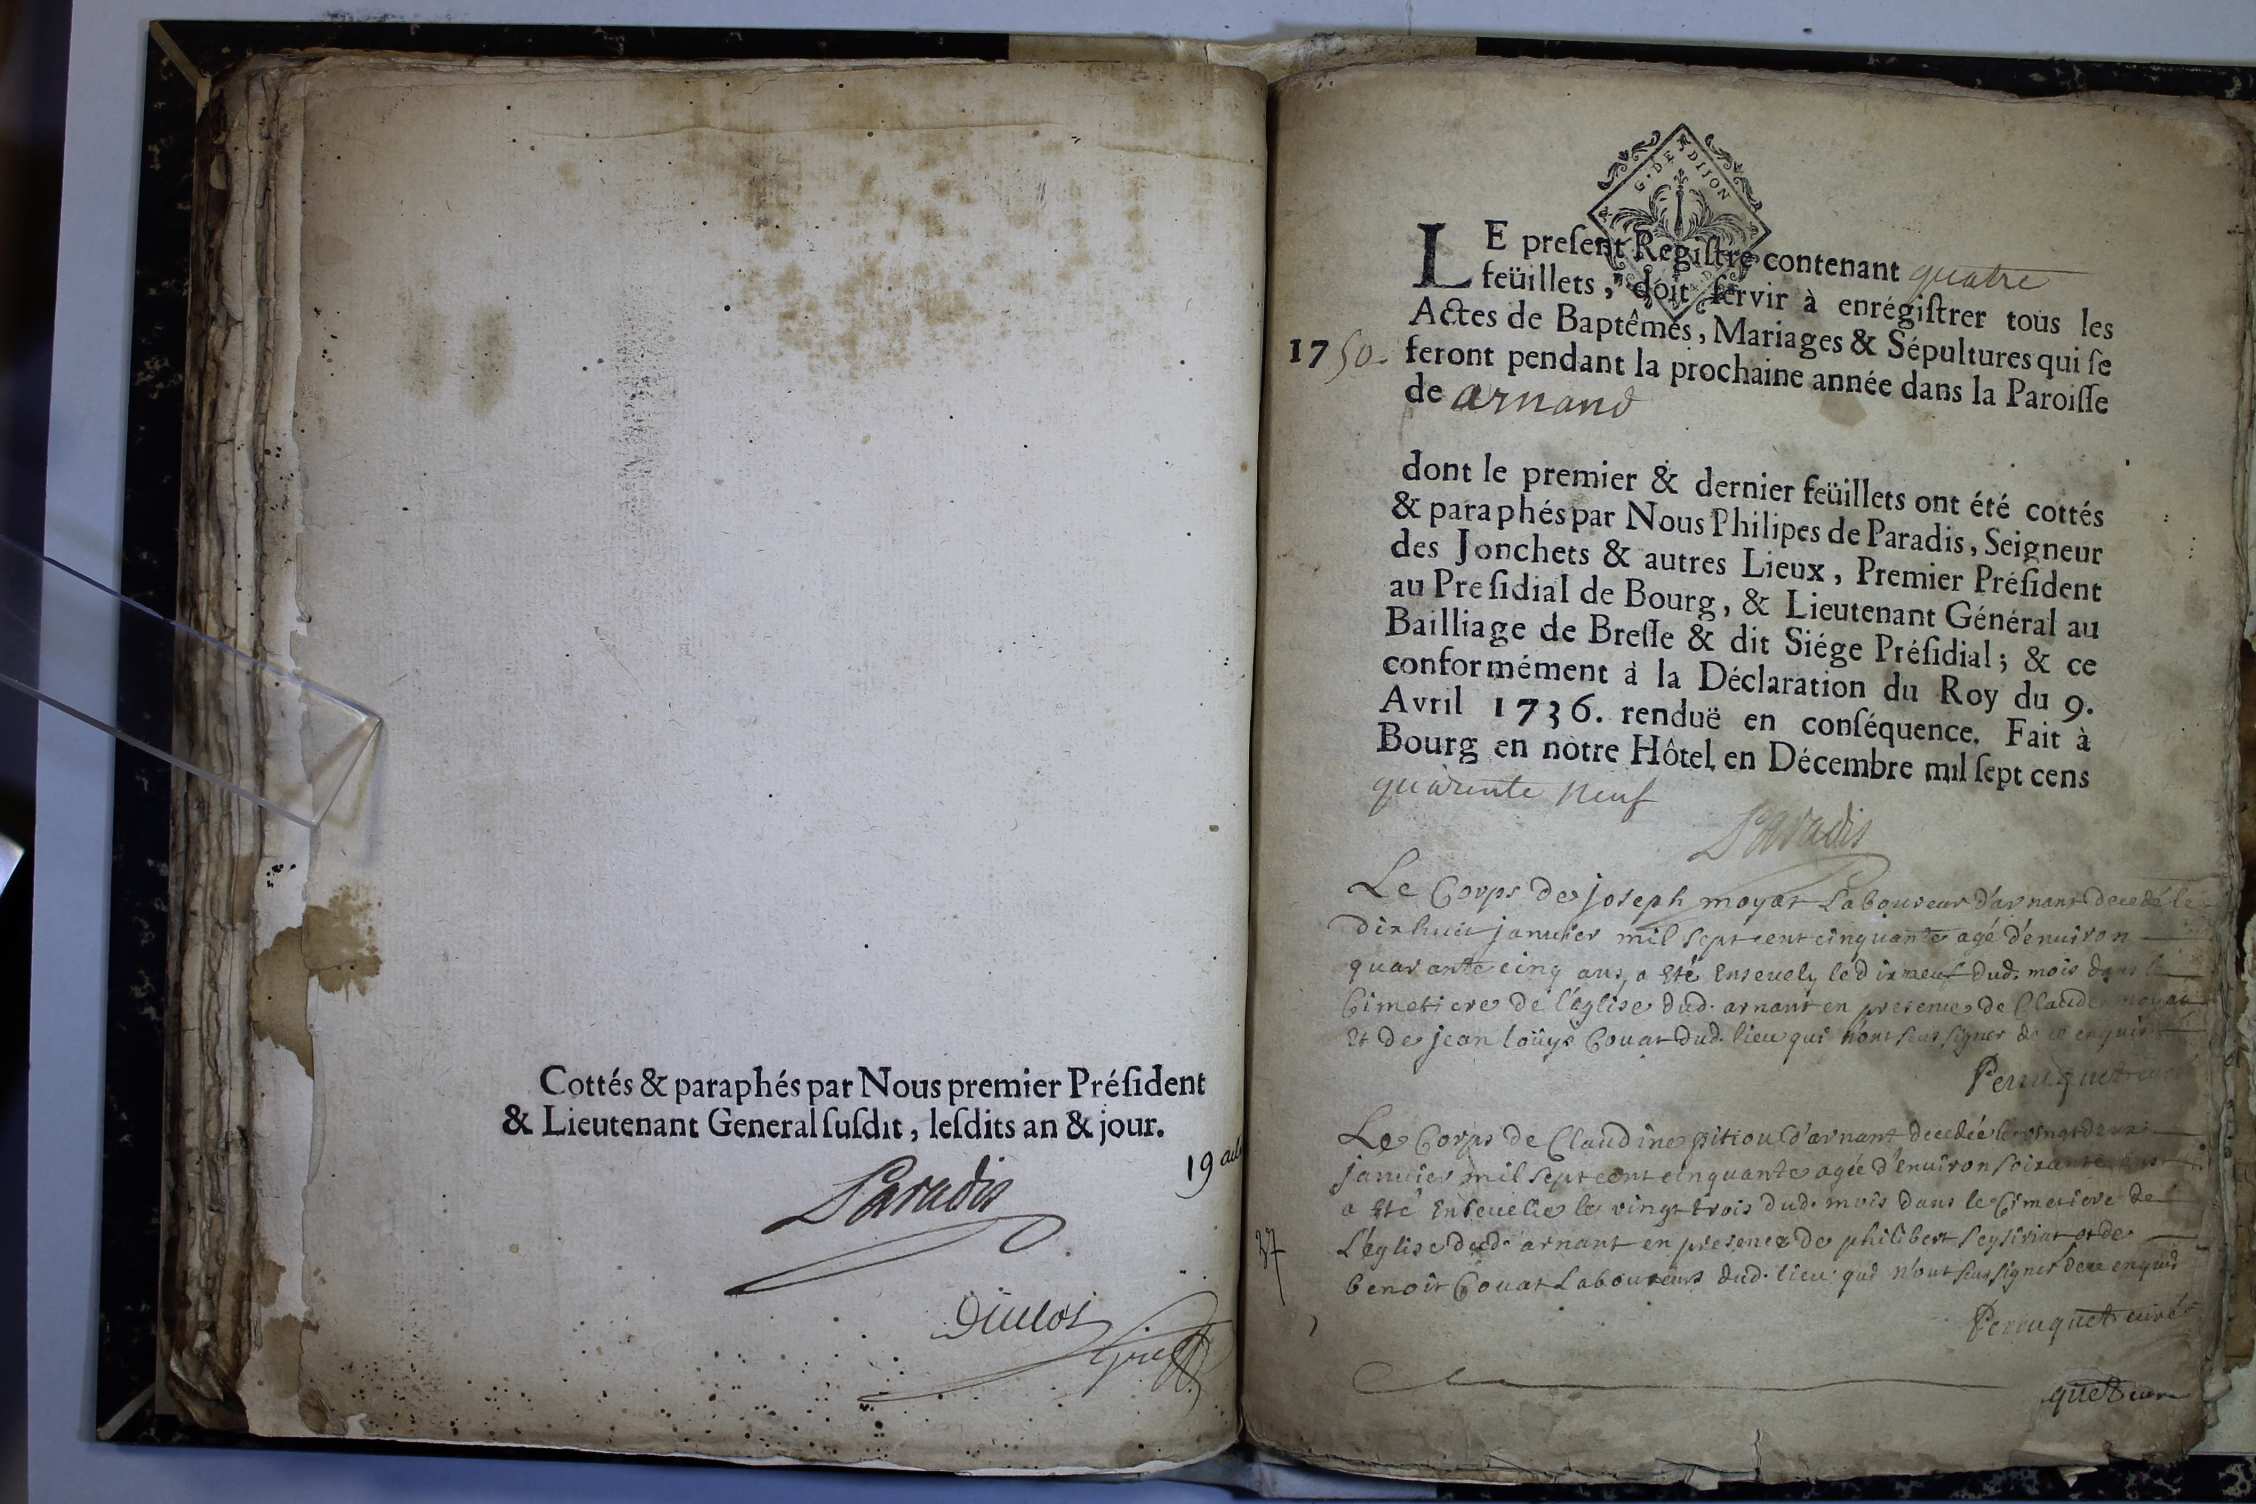 Cottés & paraphés par Nous premier Préſident
& Lieutenant General ſuſdit, leſdits an & jour.
19
Paradis
G. DE DIJON
LE preſent Regiſtre contenant quatre
feüillets, doit ſervir à enrégiſtrer tous les
Actes de Baptêmes, Mariages & Sépultures qui ſe
1750. feront pendant la prochaine année dans la Paroiſſe
de arnand
dont le premier & dernier feüillets ont été cottés
& paraphés par Nous Philipes de Paradis, Seigneur
des Jonchets & autres Lieux, Premier Préſident
au Preſidial de Bourg, & Lieutenant Général au
Bailliage de Breſſe & dit Siége Préſidial; & ce
conformément à la Déclaration du Roy du 9.
Avril 1736. renduë en conſéquence. Fait à
Bourg en notre Hôtel en Décembre mil ſept cens
quarente neuf
Paradis
Le Corps de joseph moyat Laboureur d'arnant decedé le
dixhuit janvier mil sept cent cinquante agé d'environ
quarante cinq ans, a Eté Enseuely le dixneuf dud. mois dans le
Cimetiere de l'église dud. arnant en presence de Claude moyat
Et de jean loüys Couat dud. lieu qui n'ont sceu signer de ce enquis
Perruquet curé
Le Corps de Claudine pitiou d'arnant decedée le vingt deux
janvier mil sept cent cinquante agée d'environ soixante ans
a Eté Enseuelie le vingt trois dud. mois dans le Cimetiere de
L'église dud. arnant en presence de philibert Seysiriat et de
benoit Couat Laboureurs dud. lieu qui n'ont sceu signer de ce enquis
Perruquet curé
27
quet curé